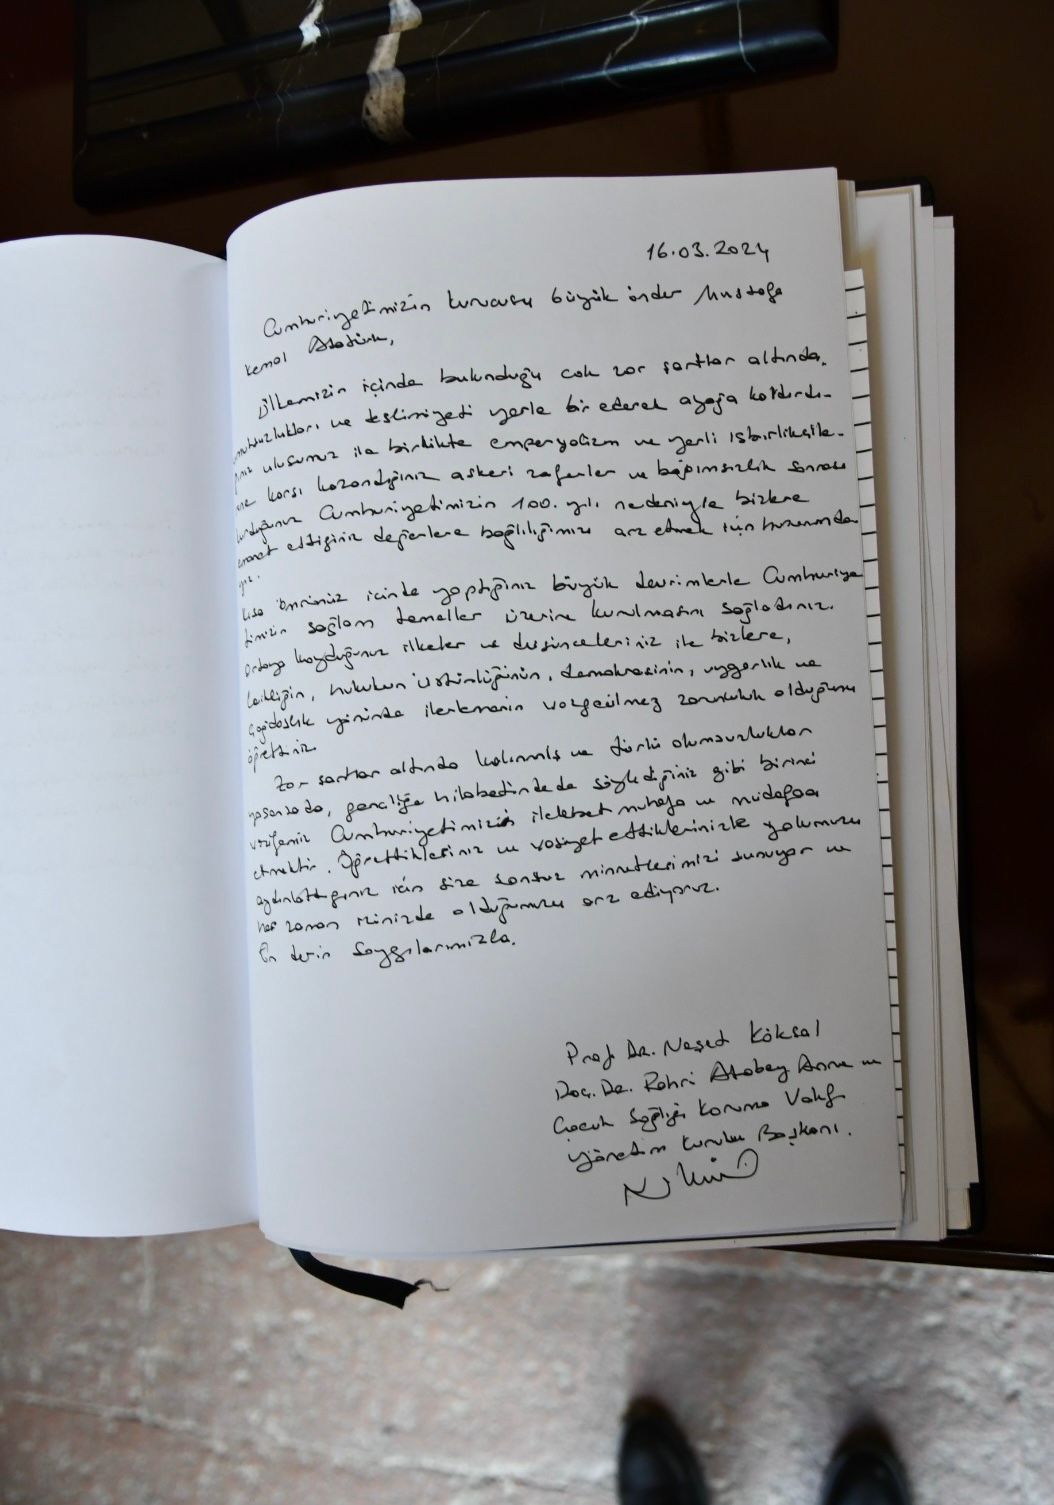 16.03.2024
Cumhuriyetimizin kurucusu büyük önder Mustafa
Kemal Atatürk,
Ülkemizin içinde bulunduğu çok zor şartlar altında,
umutsuzlukları ve teslimiyeti yerle bir ederek ayağa kaldırdı-
ğınız ulusumuz ile birlikte emperyalizm ve yerli işbirlikçile-
rine karşı kazandığınız askeri zaferler ve bağımsızlık sonrası
kurduğunuz Cumhuriyetimizin 100. yılı nedeniyle bizlere
emanet ettiğiniz değerlere bağlılığımızı arz etmek için huzurunda
yız.
Kısa ömrünüz içinde yaptığınız büyük devrimlerle Cumhuriye
timizin sağlam temeller üzerine kurulmasını sağladınız.
Ortaya koyduğunuz ilkeler ve düşünceleriniz ile bizlere,
laikliğin, hukukun üstünlüğünün, demokrasinin, uygarlık ve
çağdaşlık yönünde ilerlemenin vazgeçilmez zorunluluk olduğunu
öğrettiniz.
Zor şartlar altında kalınmış ve türlü olumsuzluklar
yaşansa da, gençliğe hitabetinde de söylediğiniz gibi birinci
vazifemiz Cumhuriyetimizin ilelebet muhafaza ve müdafaa
etmektir. Öğrettikleriniz ve vasiyet ettiklerinizle yolumuzu
aydınlattığınız için size sonsuz minnetlerimizi sunuyor ve
her zaman izinizde olduğumuzu arz ediyoruz.
En derin saygılarımızla.
Prof. Dr. Neşet Köksal
Doç. Dr. Rahmi Atabey Anne ve
Çocuk Sağlığı Koruma Vakfı
Yönetim Kurulu Başkanı.